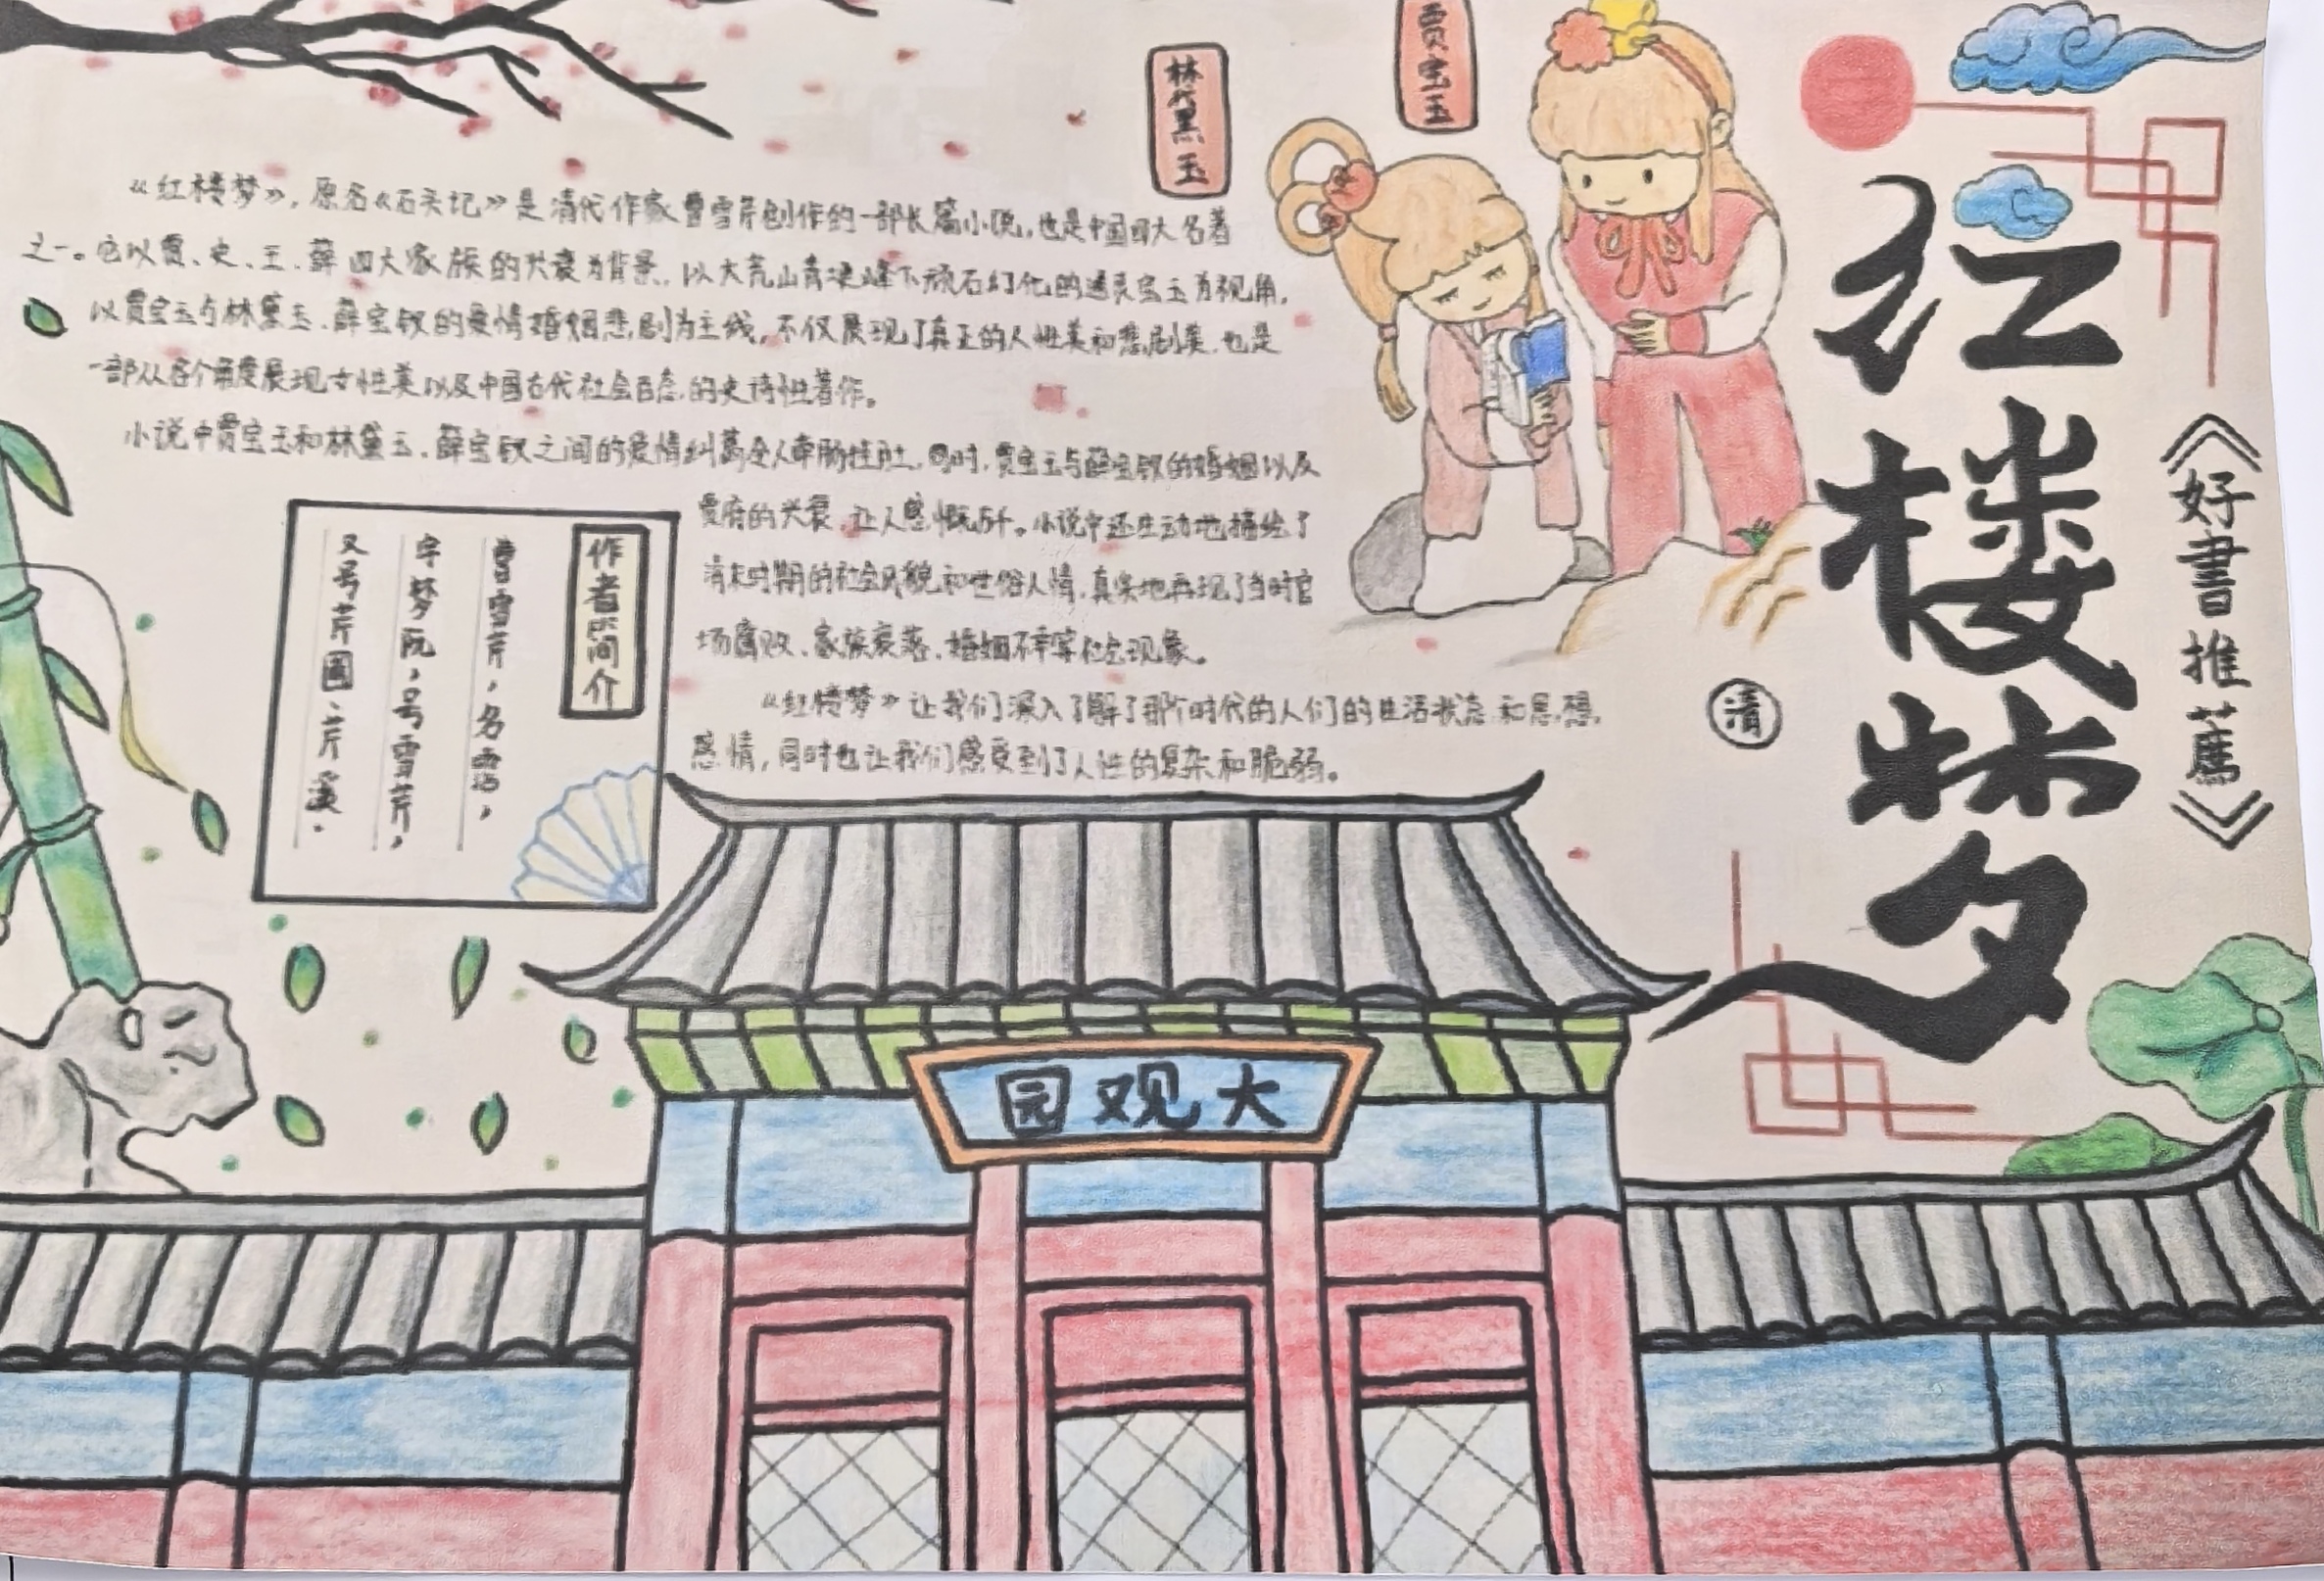 红楼梦
《好書推薦》
清
贾宝玉
林黛玉
《红楼梦》，原名《石头记》是清代作家曹雪芹创作的一部长篇小说，也是中国四大名著
之一。它以贾、史、王、薛四大家族的兴衰为背景，以大荒山青埂峰下顽石幻化的通灵宝玉为视角，
以贾宝玉与林黛玉、薛宝钗的爱情婚姻悲剧为主线，不仅展现了真正的人性美和悲剧美，也是
一部从各个角度展现女性美以及中国古代社会百态的史诗性著作。
小说中贾宝玉和林黛玉、薛宝钗之间的爱情纠葛令人牵肠挂肚，同时，贾宝玉与薛宝钗的婚姻以及
贾府的兴衰，让人感慨万千。小说中还生动地描绘了
清末时期的社会风貌和世俗人情，真实地再现了当时官
场腐败、家族衰落、婚姻不幸等社会现象。
《红楼梦》让我们深入了解了那个时代的人们的生活状态和思想，
感情，同时也让我们感受到了人性的复杂和脆弱。
作者简介
曹雪芹，名霑，
字梦阮，号雪芹，
又号芹圃、芹溪.
大观园